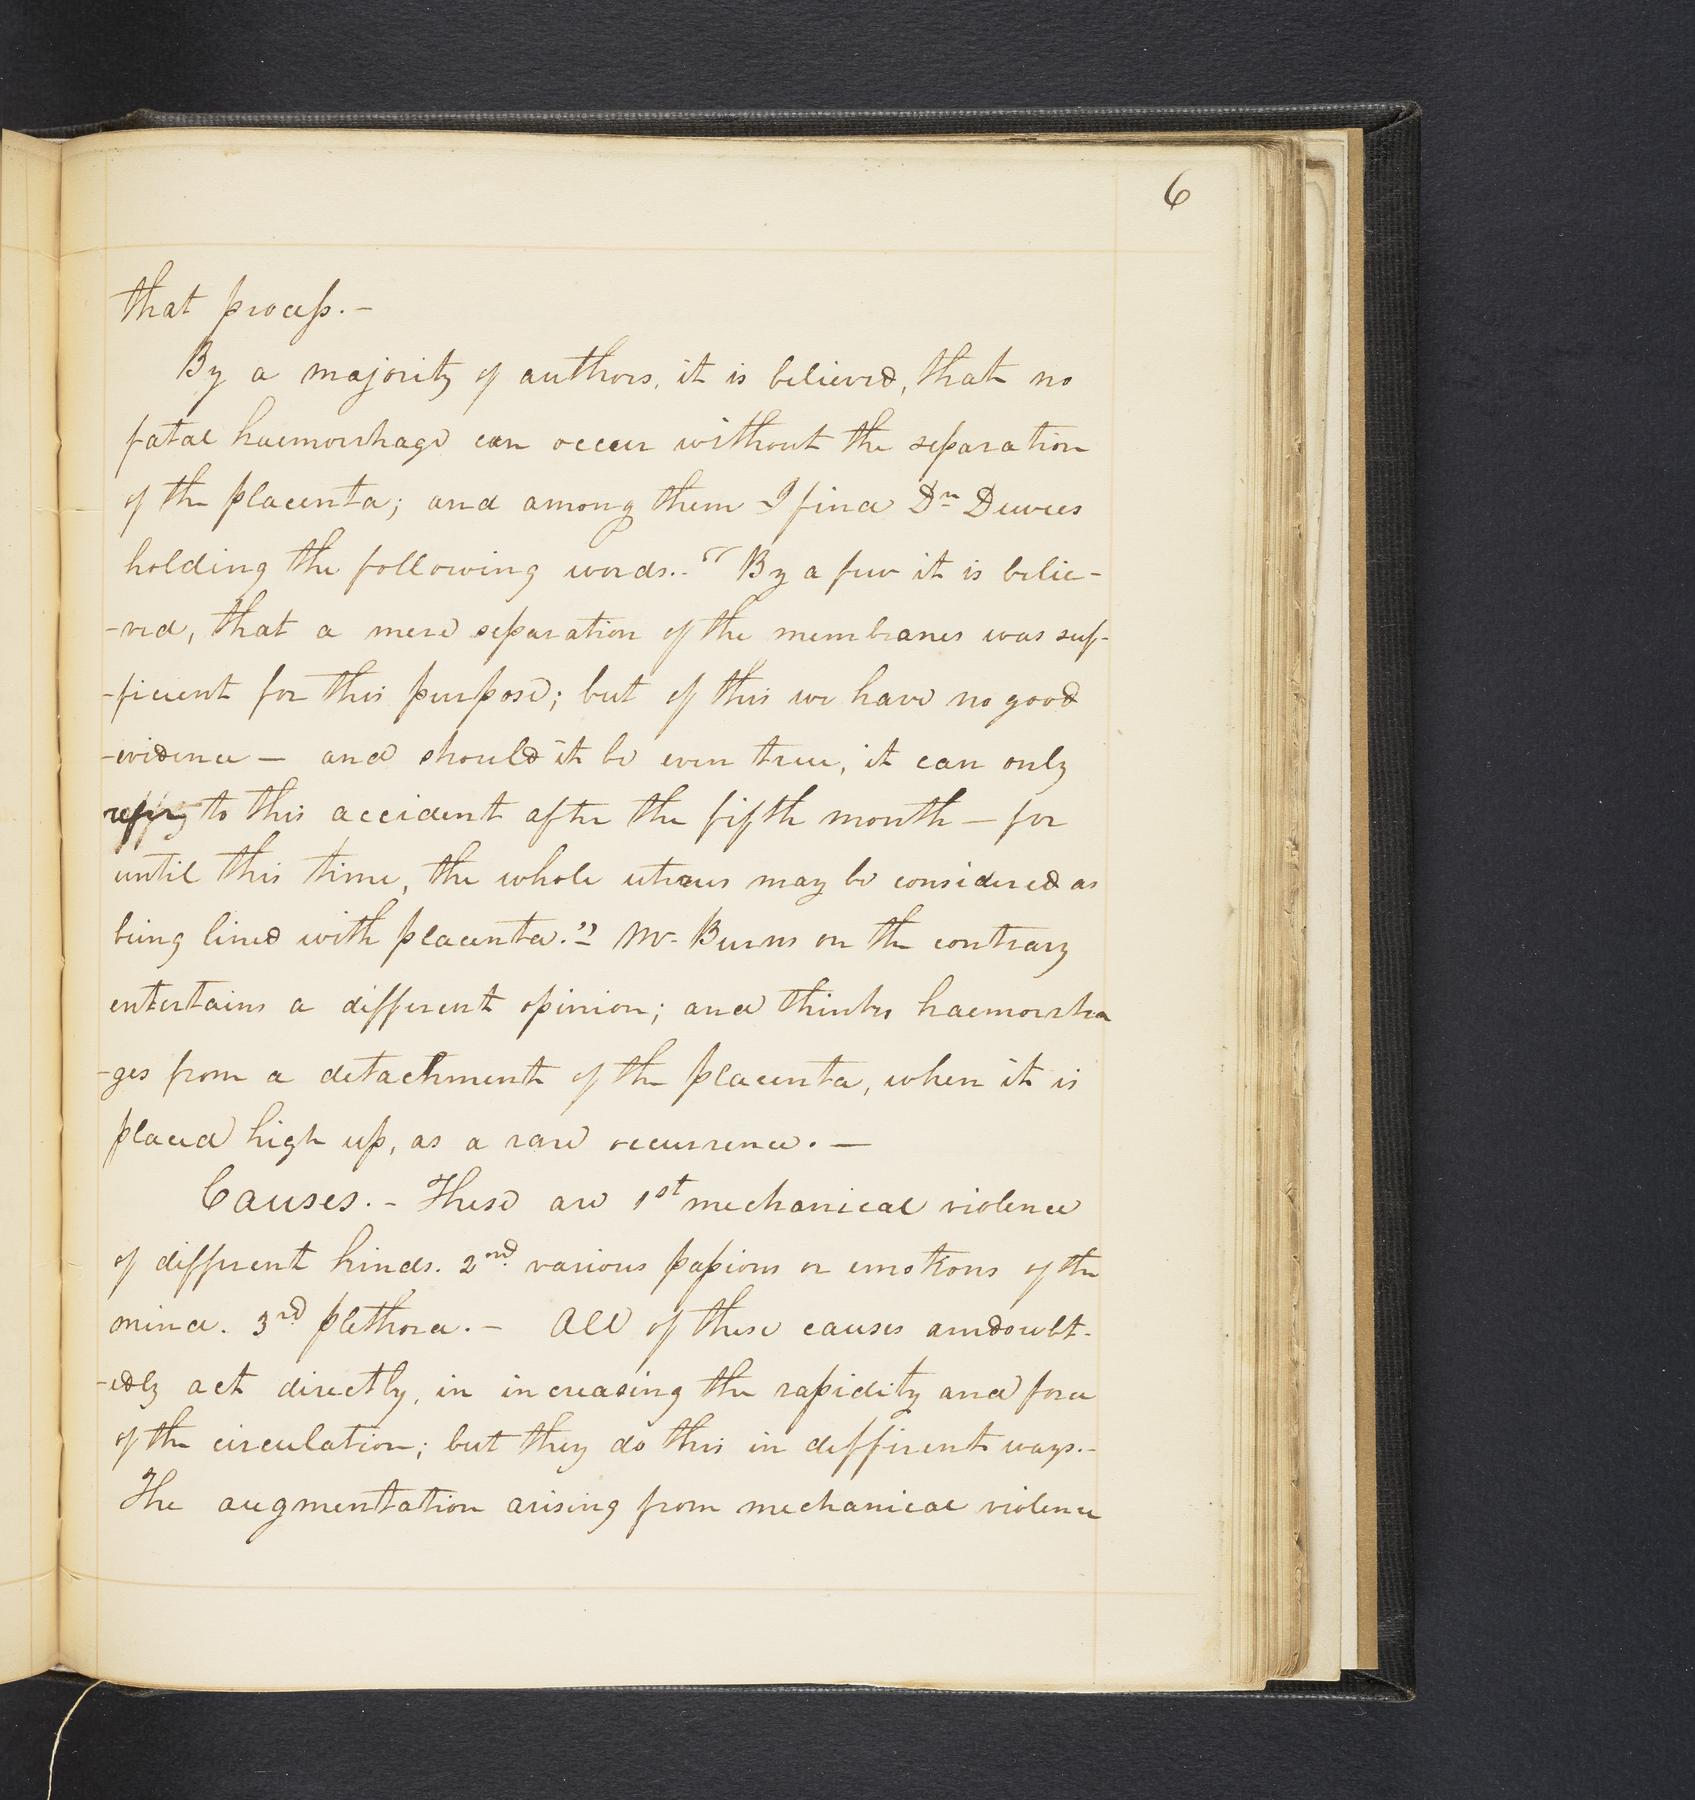 6
that process.-
By a majority of authors, it is believed, that no
fatal haemorrhage can occur without the separation
of the placenta; and among them I find Dr Dewees
holding the following words.- "By a few it is belie-
-ved, that a mere separation of the membranes was suf-
-ficient for this purpose; but of this we have no good
-evidence — and should it be even true, it can only
to this accident after the fifth month — for
until this time, the whole uterus may be considered as
being lined with placenta." Mr. Burns on the contrary
entertains a different opinion; and thinks haemorrha
-ges from a detachment of the placenta, when it is
placed high up, as a rare occurrence. —
Causes. - These are 1st mechanical violence
of different kinds. 2nd. various passions or emotions of the
mind. 3rd plethora. - All of these causes undoubt-
-edly act directly, in increasing the rapidity and force
of the circulation; but they do this in different ways.-
The augmentation arising from mechanical violence